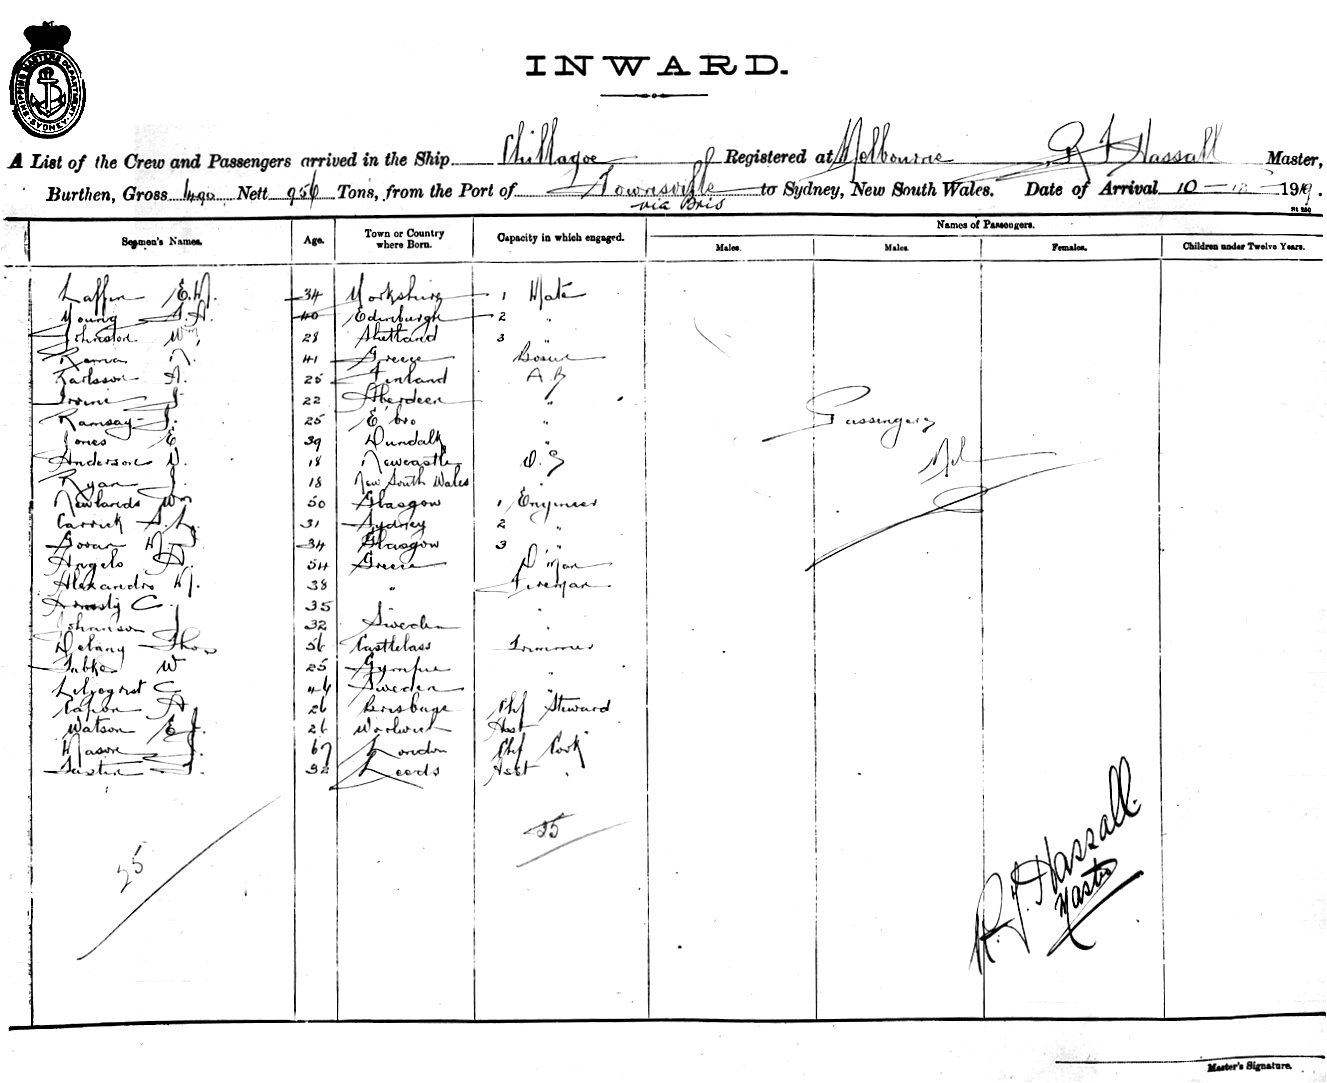 SHIPPING MASTERS DEPARTMENT SYDNEY
INWARD.
A List of the Crew and Passengers arrived in the Ship Chillagoe Registered at Melbourne R F Hassall Master,
Burthen, Gross 1490 Nett 956 Tons, from the Port of Townsville to Sydney, New South Wales. Date of Arrival 10 - 12 - 1919.
via Bris
Seamen's Names. Age. Town or Country where Born. Capacity in which engaged. Names of Passengers.
Males. Males. Females. Children under Twelve Years.
Laffin 34 Yorkshire 1 Mate
Young 40 Edinburgh 2 "
Johnston Wm 28 Shetland 3 "
Rama N. 41 Greece Bosun
Karlsson A. 25 Finland A B
Irvine J 22 Aberdeen "
Ramsay J. 25 E'bro "
Jones E 39 Dundalk "
Anderson D. 18 Newcastle O. S
Ryan J. 18 New South Wales
Newlands Wm 50 Glasgow 1 Engineer
Carrick A. L 31 Sydney 2 "
Doran 34 Glasgow 3 "
Angelo A. 54 Greece D'man
Alexandro 38 " Fireman
C. 35 "
Johanson J 32 Sweden "
Delany Thos 56 Trimmer
W 25 Gympie "
C 46 Sweden "
Capon A 26 Brisbane Chf Steward
Watson E J. 26 Woolwich Asst "
Mason J. 67 London Chf Cook
J. 32 Leeds Asst "
Passengers
Nil
25
25
R. F. Hassall
Master
Master's Signature.